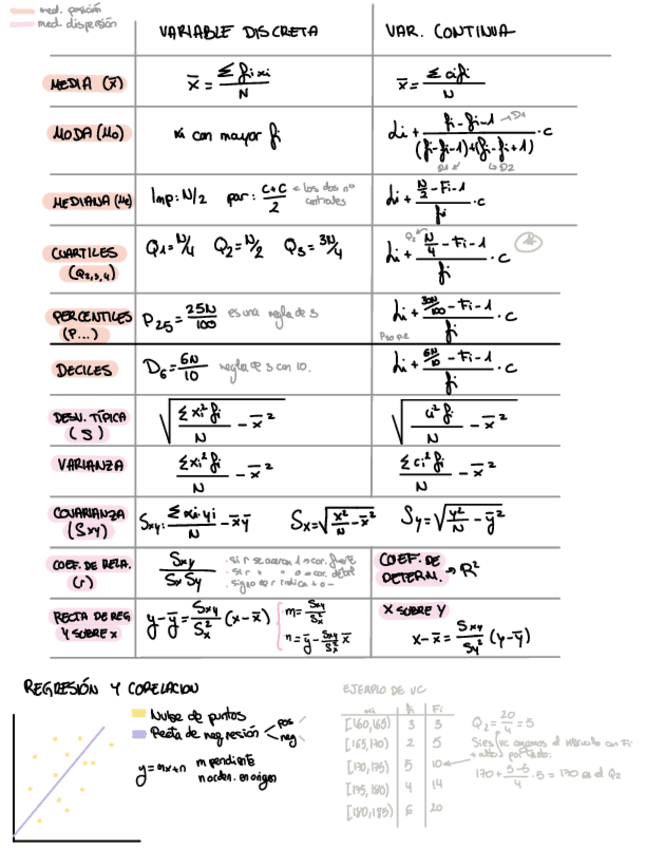 med. posición
med. dispersión
VARIABLE DISCRETA
VAR. CONTINUA
MEDIA (x̄)
x̄ = Σ fi xi / N
x̄ = Σ ci fi / N
MODA (Mo)
xi con mayor fi
Li + (fi - fi-1) / ((fi - fi-1) + (fi - fi+1)) · c
→ D1
D1
↳ D2
MEDIANA (Me)
Imp: N/2 par: (C+C)/2 ← los dos nº centrales
Li + (N/2 - Fi-1) / fi · c
CUARTILES (Q2,3,4)
Q1 = N/4 Q2 = N/2 Q3 = 3N/4
Q1
Li + (N/4 - Fi-1) / fi · c
PERCENTILES (P...)
P25 = 25N/100 es una regla de 3
Li + (30N/100 - Fi-1) / fi · c
DECILES
D6 = 6N/10 regla de 3 con 10.
Li + (6N/10 - Fi-1) / fi · c
DESV. TÍPICA (S)
√(Σ xi² fi / N - x̄²)
√(ci² fi / N - x̄²)
VARIANZA
Σ xi² fi / N - x̄²
Σ ci² fi / N - x̄²
COVARIANZA (Sxy)
Sxy: Σ xi·yi / N - x̄ȳ
Sx = √(x²/N - x̄²)
Sy = √(y²/N - ȳ²)
COEF. DE RELA. (r)
Sxy / Sx Sy
· si r se acerca 1 → cor. fuerte
· si r " " 0 → cor. débil
· signo de r indica + o -
COEF. DE DETERM. → R²
RECTA DE REG Y SOBRE X
y - ȳ = Sxy / Sx² (x - x̄)
m = Sxy / Sx
n = ȳ - Sxy / Sx² x̄
X SOBRE Y
x - x̄ = Sxy / Sy² (y - ȳ)
REGRESIÓN Y CORELACION
Nube de puntos
Recta de regresión < pos
neg
y = mx + n m pendiente
n orden. en origen
EJEMPLO DE VC
xi fi Fi
[160,165) 3 3
[165,170) 2 5
[170,175) 5 10
[175,180) 4 14
[180,185) 6 20
Q2 = 20/4 = 5
170 + (5-5)/4 · 5 = 170 es el Q2